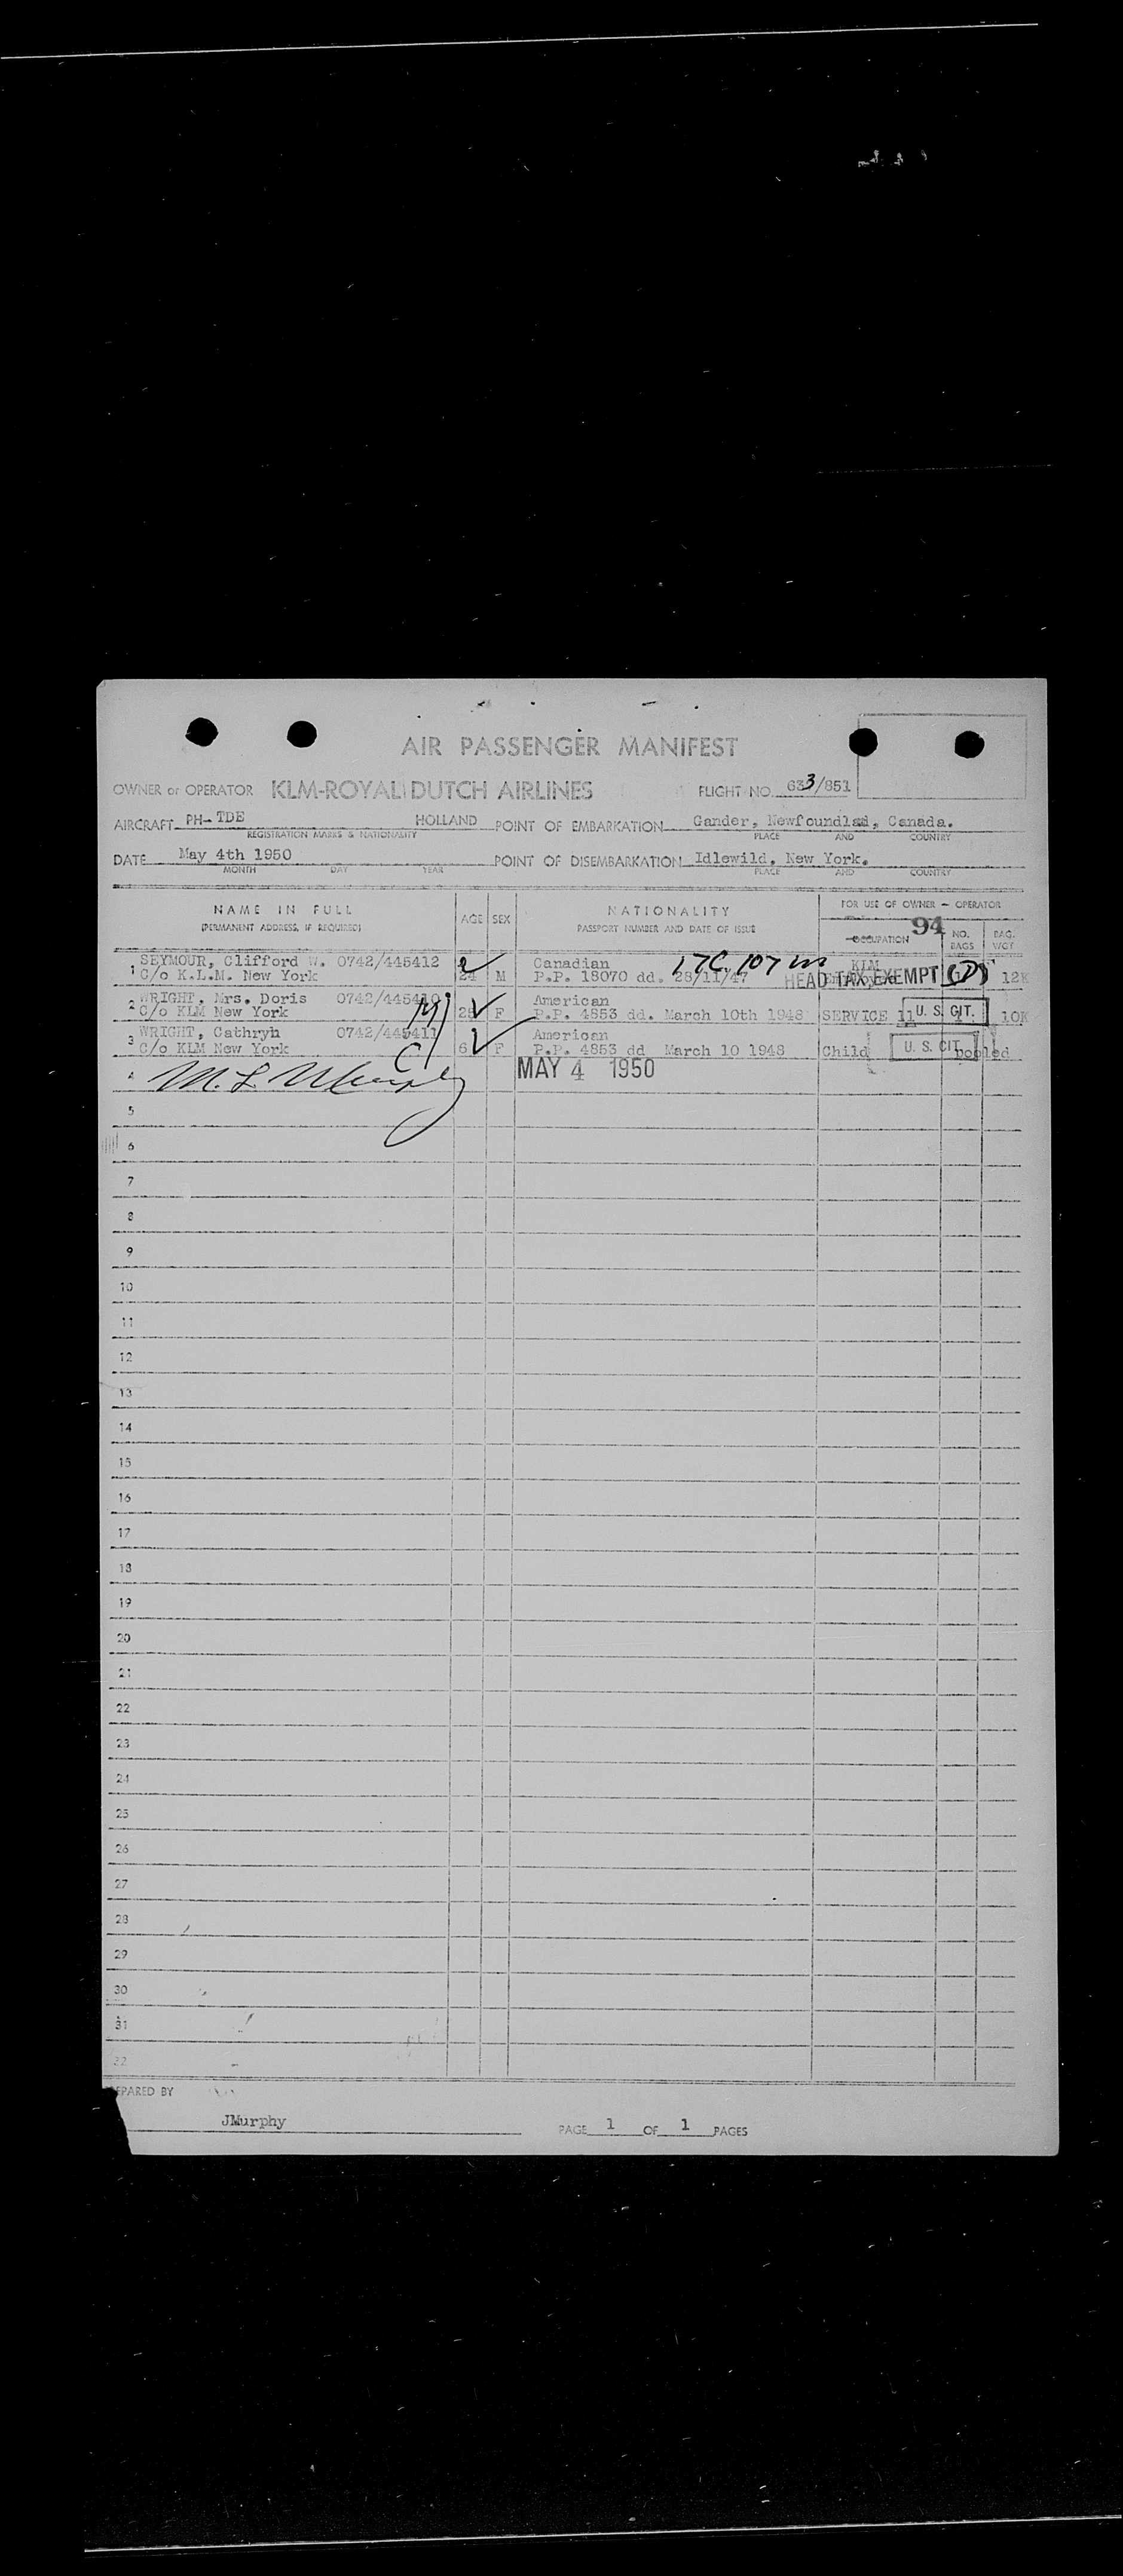 AIR PASSENGER MANIFEST
OWNER or OPERATOR KLM-ROYAL DUTCH AIRLINES FLIGHT NO. 633/851
AIRCRAFT PH-TDE HOLLAND POINT OF EMBARKATION Gander, Newfoundlad, Canada.
REGISTRATION MARKS & NATIONALITY PLACE AND COUNTRY
DATE May 4th 1950 POINT OF DISEMBARKATION Idlewild, New York.
MONTH DAY YEAR PLACE AND COUNTRY
NAME IN FULL AGE SEX NATIONALITY FOR USE OF OWNER - OPERATOR
(PERMANENT ADDRESS, IF REQUIRED) PASSPORT NUMBER AND DATE OF ISSUE 94 OCCUPATION NO. BAGS BAG. WGT
1 SEYMOUR, Clifford W. 0742/445412 Canadian 17C. 107 KLM
C/o K.L.M. New York 24 M P.P. 18070 dd. 28/11/47 HEAD TAX EXEMPT 12K
2 WRIGHT, Mrs. Doris 0742/445410 American
C/o KLM New York F P.P. 4853 dd. March 10th 1948 SERVICE 11 U. S. CIT. 10K
3 WRIGHT, Cathryn 0742/445411 American
C/o KLM New York 6 F P.P. 4853 dd March 10 1948 Child U. S. CIT. pooled
4 M. L. Murphy MAY 4 1950
5
6
7
8
9
10
11
12
13
14
15
16
17
18
19
20
21
22
23
24
25
26
27
28
29
30
31
32
PREPARED BY
JMurphy PAGE 1 OF 1 PAGES